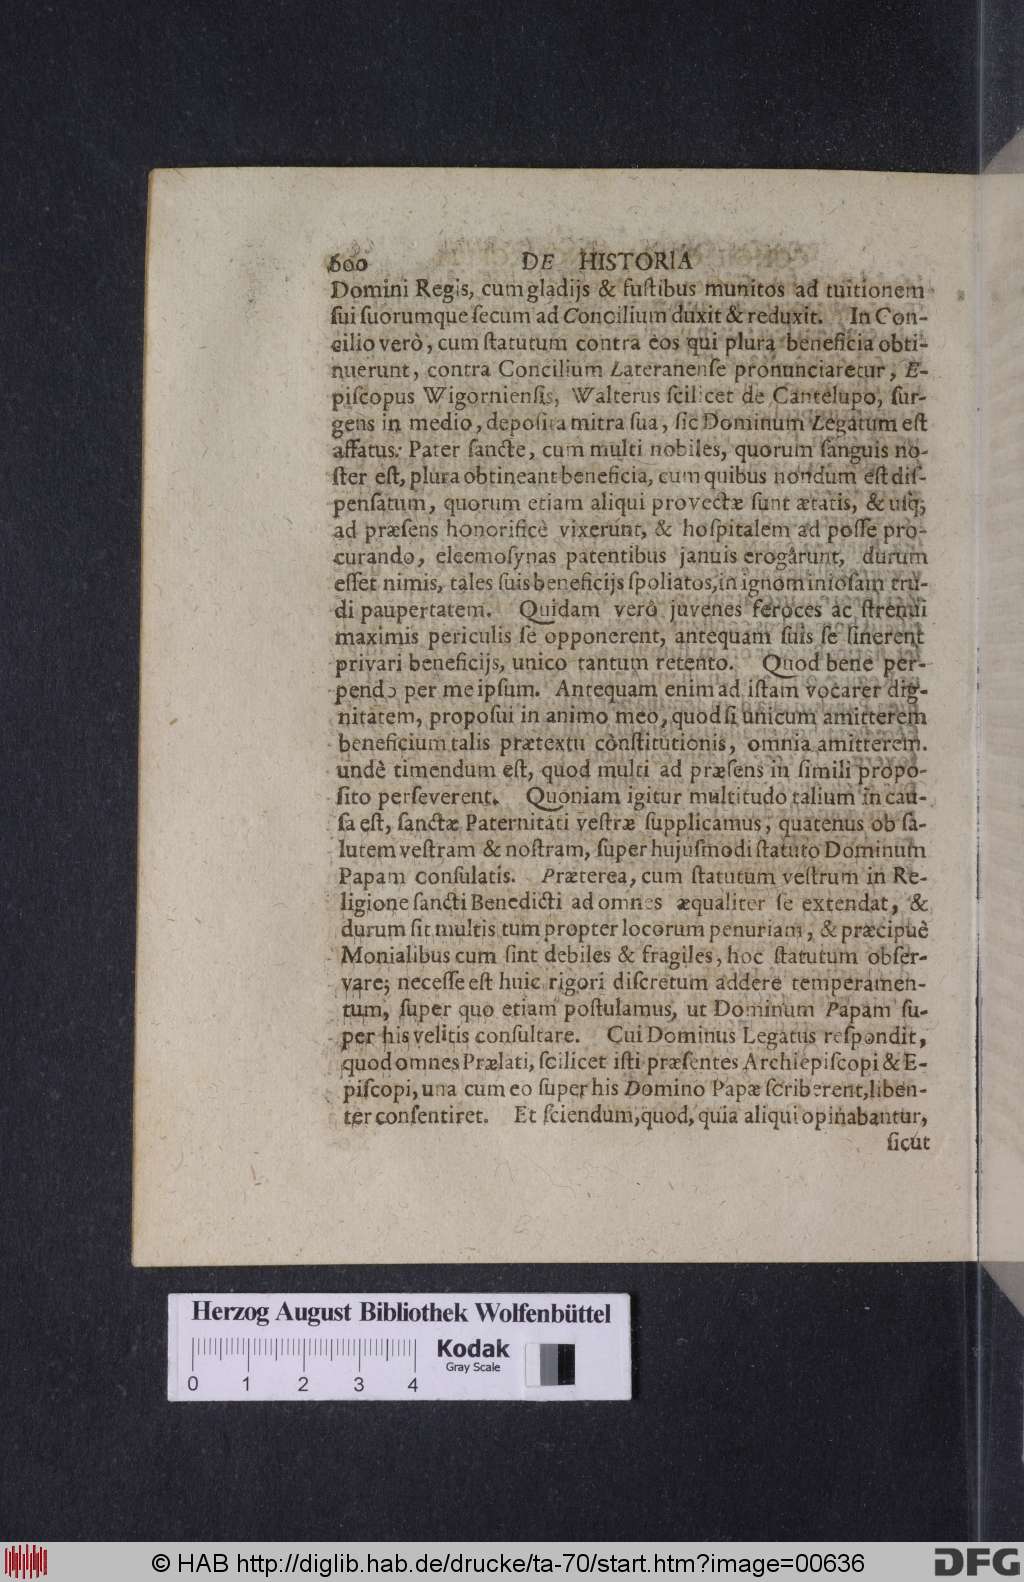 600 DE HISTORIA
Domini Regis, cum gladijs & fuſtibus munitos ad tuitionem
ſui ſuorumque ſecum ad Concilium duxit & reduxit. In Con-
cilio verò, cum ſtatutum contra eos qui plura beneficia obti-
nuerunt, contra Concilium Lateranenſe pronunciaretur, E-
piſcopus Wigornienſis, Walterus ſcilicet de Cantelupo, ſur-
gens in medio, depoſita mitra ſua, ſic Dominum Legatum eſt
affatus: Pater ſancte, cum multi nobiles, quorum ſanguis no-
ſter eſt, plura obtineant beneficia, cum quibus nondum eſt diſ-
penſatum, quorum etiam aliqui provectæ ſunt ætatis, & uſq;
ad præſens honorificè vixerunt, & hoſpitalem ad poſſe pro-
curando, eleemoſynas patentibus januis erogârunt, durum
eſſet nimis, tales ſuis beneficijs ſpoliatos, in ignominioſam tru-
di paupertatem. Quidam verò juvenes feroces ac ſtrenui
maximis periculis ſe opponerent, antequam ſuis ſe ſinerent
privari beneficijs, unico tantum retento. Quod bene per-
pendo per me ipſum. Antequam enim ad iſtam vocarer dig-
nitatem, propoſui in animo meo, quod ſi unicum amitterem
beneficium talis prætextu cònſtitutionis, omnia amitterem.
undè timendum eſt, quod multi ad præſens in ſimili propo-
ſito perſeverent. Quoniam igitur multitudo talium in cau-
ſa eſt, ſanctæ Paternitati veſtræ ſupplicamus, quatenus ob ſa-
lutem veſtram & noſtram, ſuper hujuſmodi ſtatuto Dominum
Papam conſulatis. Præterea, cum ſtatutum veſtrum in Re-
ligione ſancti Benedicti ad omnes æqualiter ſe extendat, &
durum ſit multis tum propter locorum penuriam, & præcipuè
Monialibus cum ſint debiles & fragiles, hoc ſtatutum obſer-
vare; neceſſe eſt huic rigori diſcretum addere temperamen-
tum, ſuper quo etiam poſtulamus, ut Dominum Papam ſu-
per his velitis conſultare. Cui Dominus Legatus reſpondit,
quod omnes Prælati, ſcilicet iſti præſentes Archiepiſcopi & E-
piſcopi, una cum eo ſuper his Domino Papæ ſcriberent, liben-
ter conſentiret. Et ſciendum, quod, quia aliqui opinabantur,
ſicut
Herzog August Bibliothek Wolfenbüttel
Kodak
Gray Scale
0 1 2 3 4
© HAB http://diglib.hab.de/drucke/ta-70/start.htm?image=00636
DFG